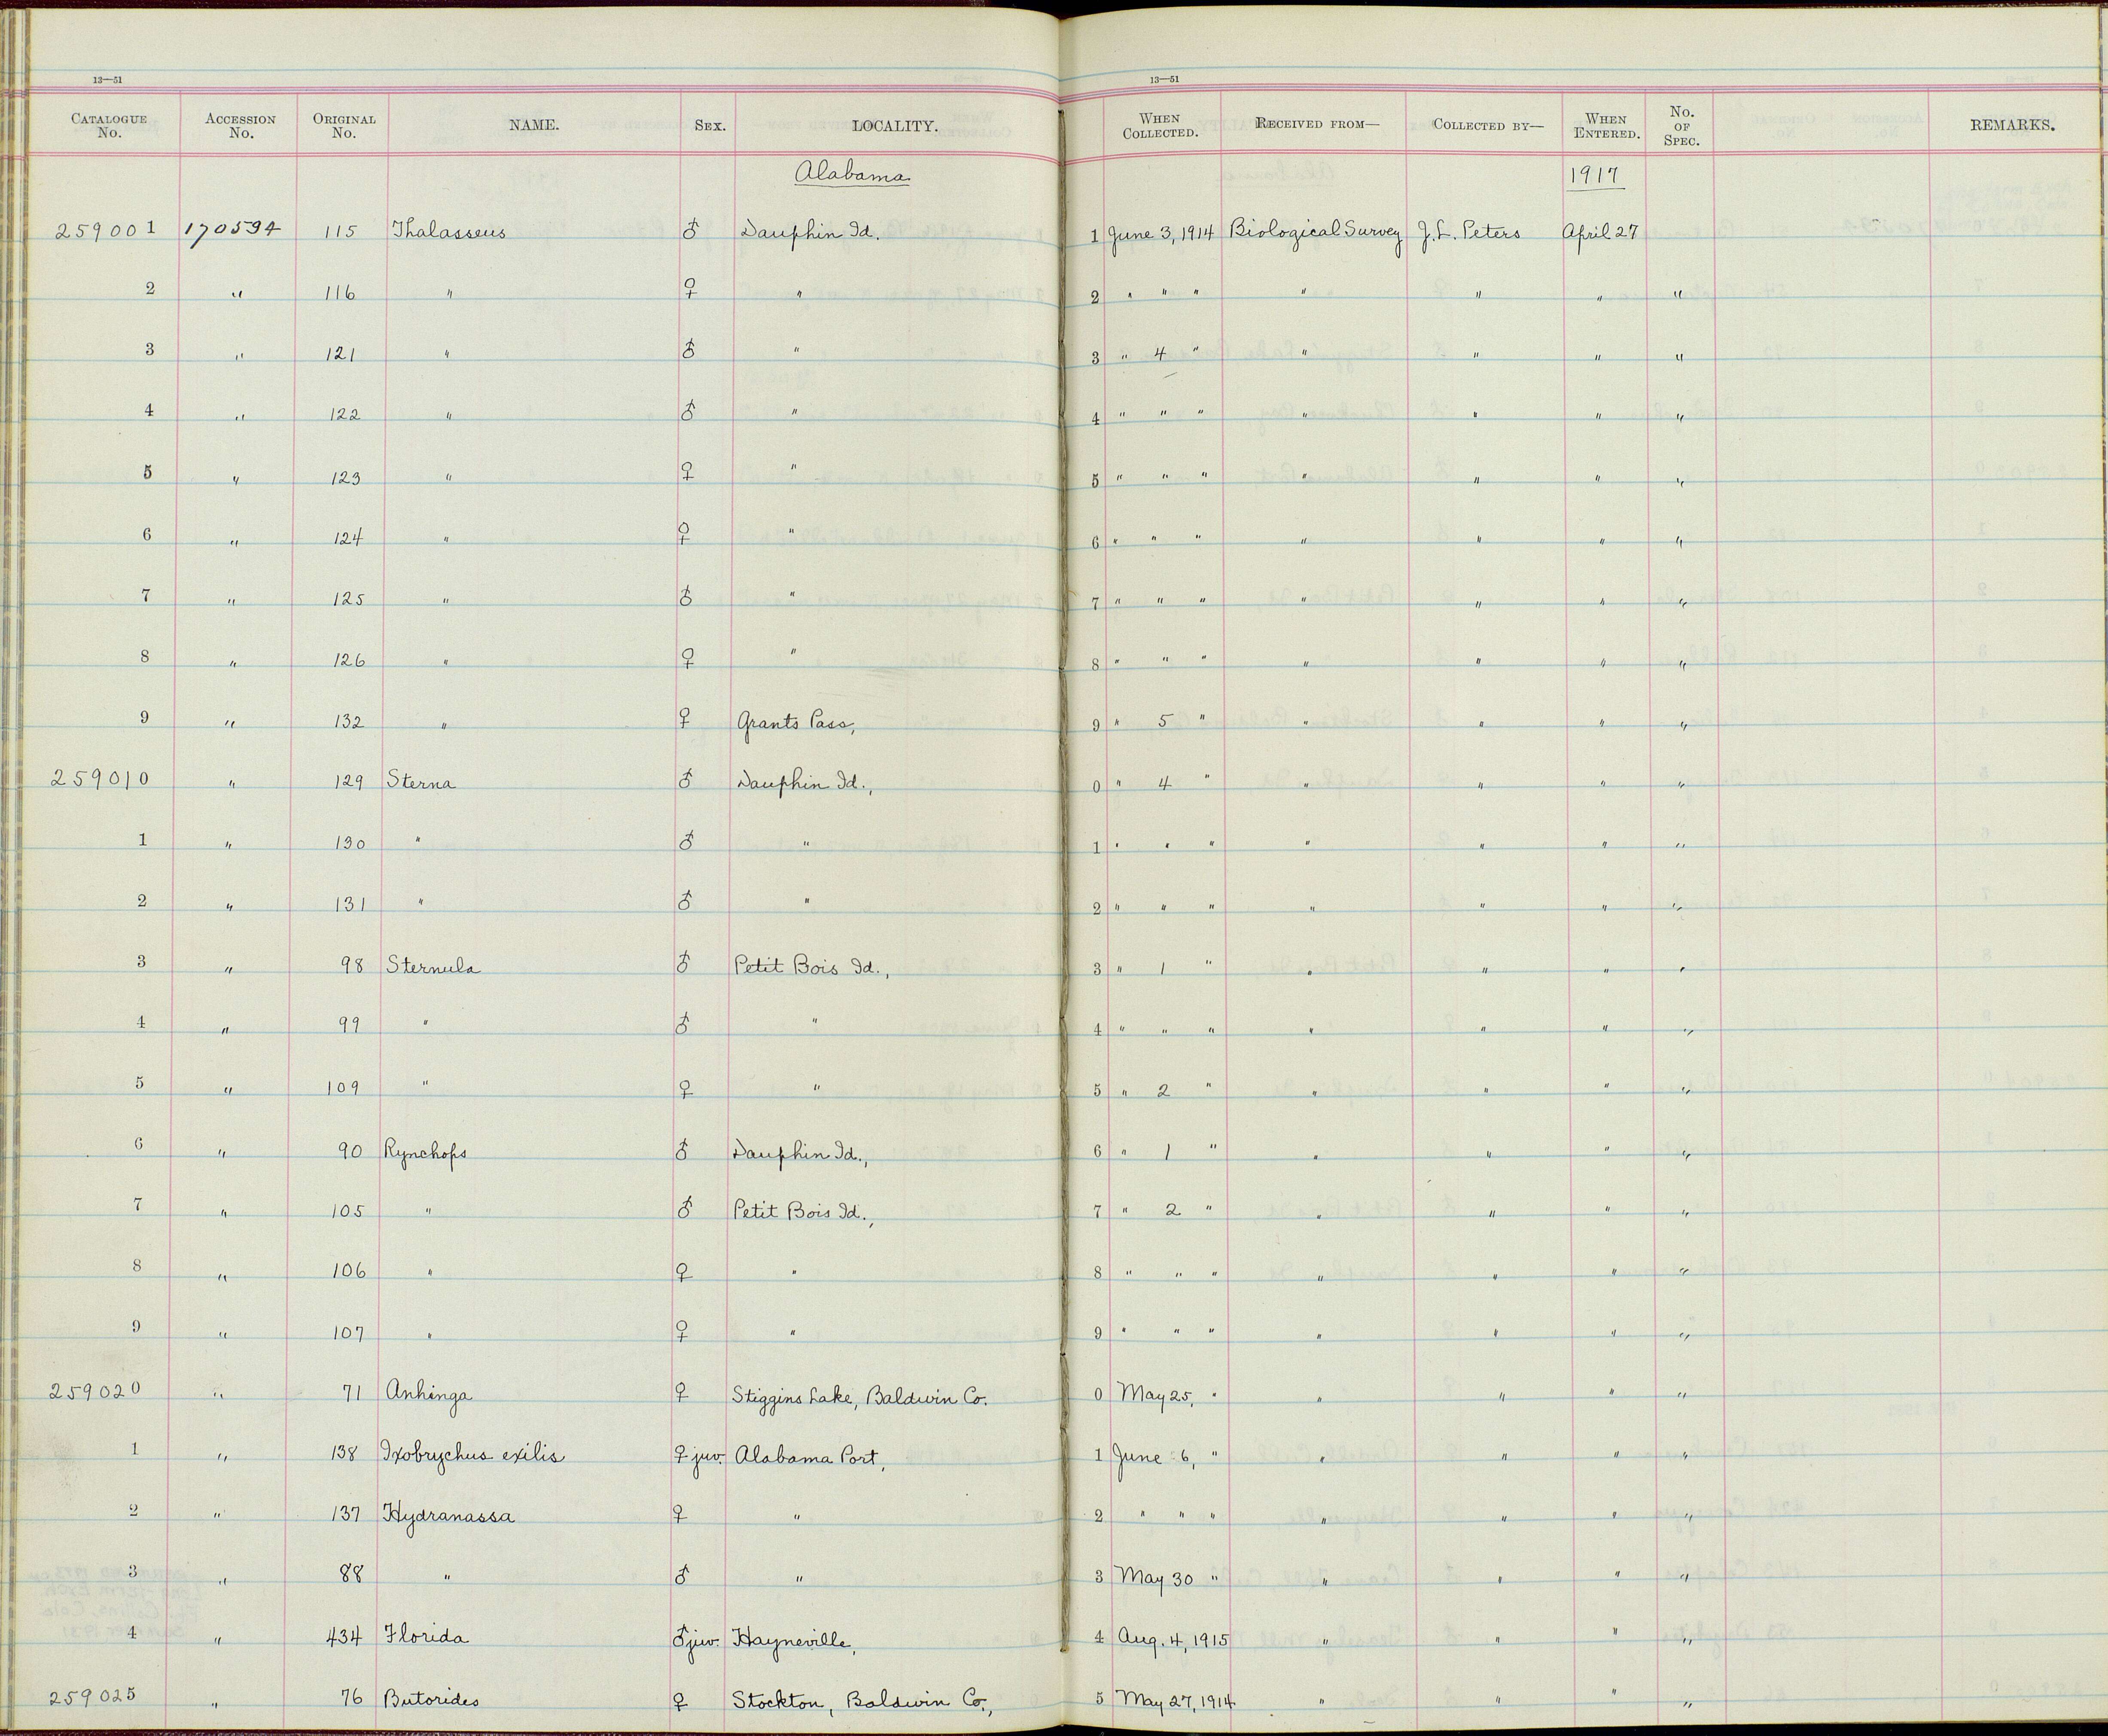 13—51 13—51
CATALOGUE No. ACCESSION No. ORIGINAL No. NAME. SEX. LOCALITY. WHEN COLLECTED. RECEIVED FROM— COLLECTED BY— WHEN ENTERED. No. OF SPEC. REMARKS.
Alabama 1917
259001 170594 115 Thalasseus ♂ Dauphin Id. 1 June 3, 1914 Biological Survey J. L. Peters April 27
2 " 116 " ♀ " 2 " " " " " " "
3 " 121 " ♂ " 3 " 4 " " " " "
4 " 122 " ♂ " 4 " " " " " " "
5 " 123 " ♀ " 5 " " " " " " "
6 " 124 " ♀ " 6 " " " " " " "
7 " 125 " ♂ " 7 " " " " " " "
8 " 126 " ♀ " 8 " " " " " " "
9 " 132 " ♀ Grants Pass, 9 " 5 " " " " "
259010 " 129 Sterna ♂ Dauphin Id., 0 " 4 " " " " "
1 " 130 " ♂ " 1 " " " " " " "
2 " 131 " ♂ " 2 " " " " " " "
3 " 98 Sternula ♂ Petit Bois Id., 3 " 1 " " " " "
4 " 99 " ♂ " 4 " " " " " " "
5 " 109 " ♀ " 5 " 2 " " " " "
6 " 90 Rynchops ♂ Dauphin Id., 6 " 1 " " " " "
7 " 105 " ♂ Petit Bois Id., 7 " 2 " " " " "
8 " 106 " ♀ " 8 " " " " " " "
9 " 107 " ♀ " 9 " " " " " " "
259020 " 71 Anhinga ♀ Stiggins Lake, Baldwin Co. 0 May 25, " " " " "
1 " 138 Ixobrychus exilis ♀ juv. Alabama Port, 1 June 6, " " " " "
2 " 137 Hydranassa ♀ " 2 " " " " " " "
3 " 88 " ♂ " 3 May 30 " " " " "
4 " 434 Florida ♂ juv. Hayneville, 4 Aug. 4, 1915 " " " "
259025 " 76 Butorides ♀ Stockton, Baldwin Co., 5 May 27, 1914 " " " "